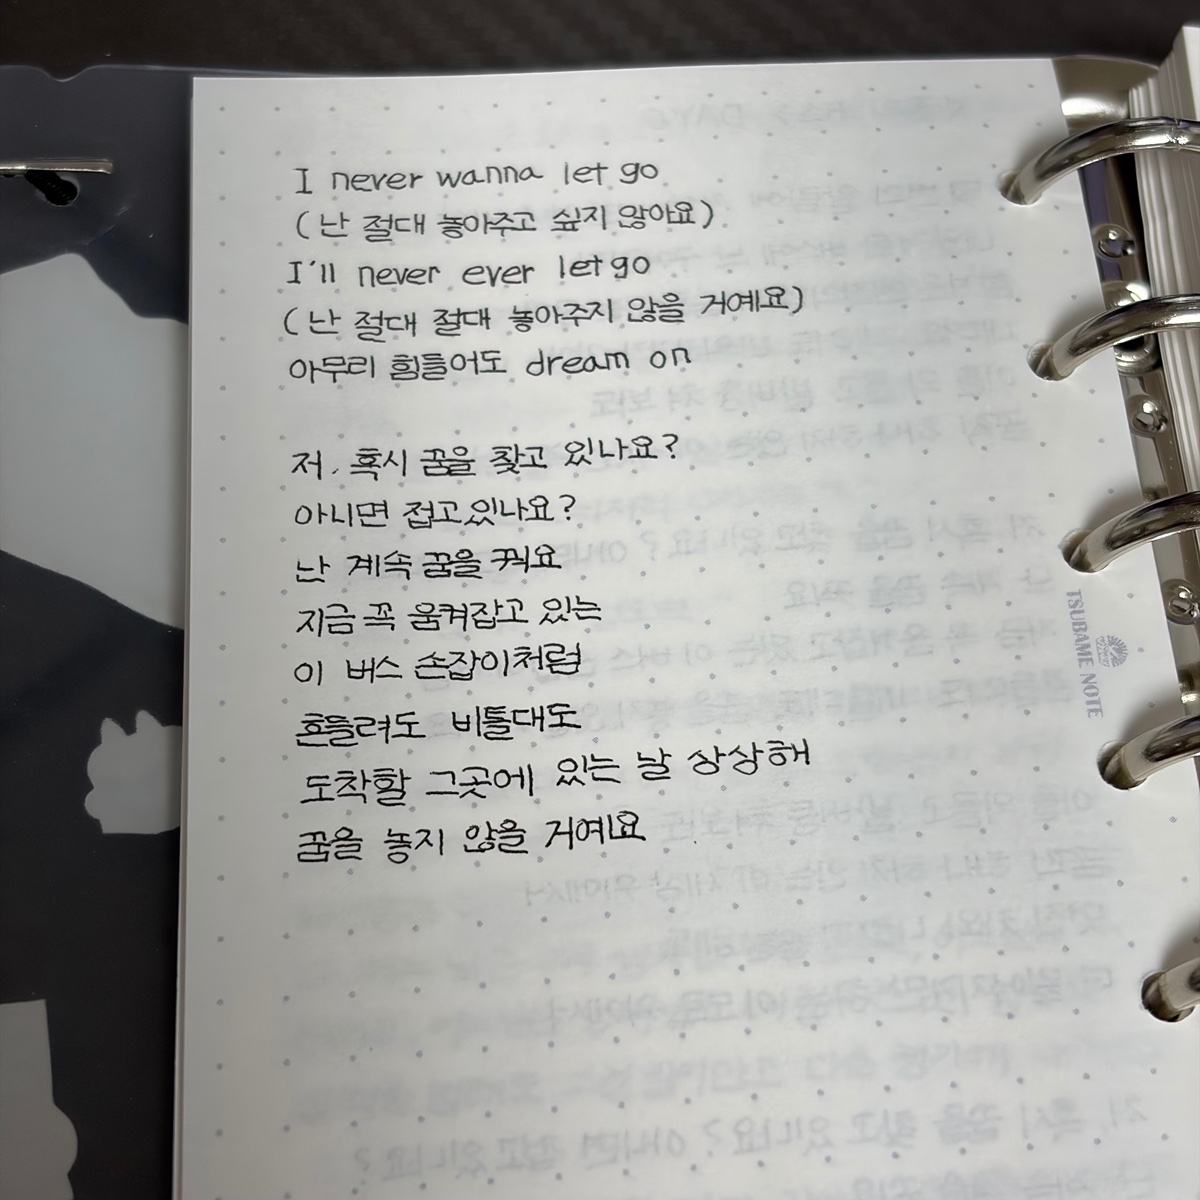 I never wanna let go
(난 절대 놓아주고 싶지 않아요)
I'll never ever let go
(난 절대 절대 놓아주지 않을 거예요)
아무리 힘들어도 dream on
저, 혹시 꿈을 찾고 있나요?
아니면 접고있나요?
난 계속 꿈을 꿔요
지금 꼭 움켜잡고 있는
이 버스 손잡이처럼
흔들려도 비틀대도
도착할 그곳에 있는 날 상상해
꿈을 놓지 않을 거예요
TSUBAME NOTE